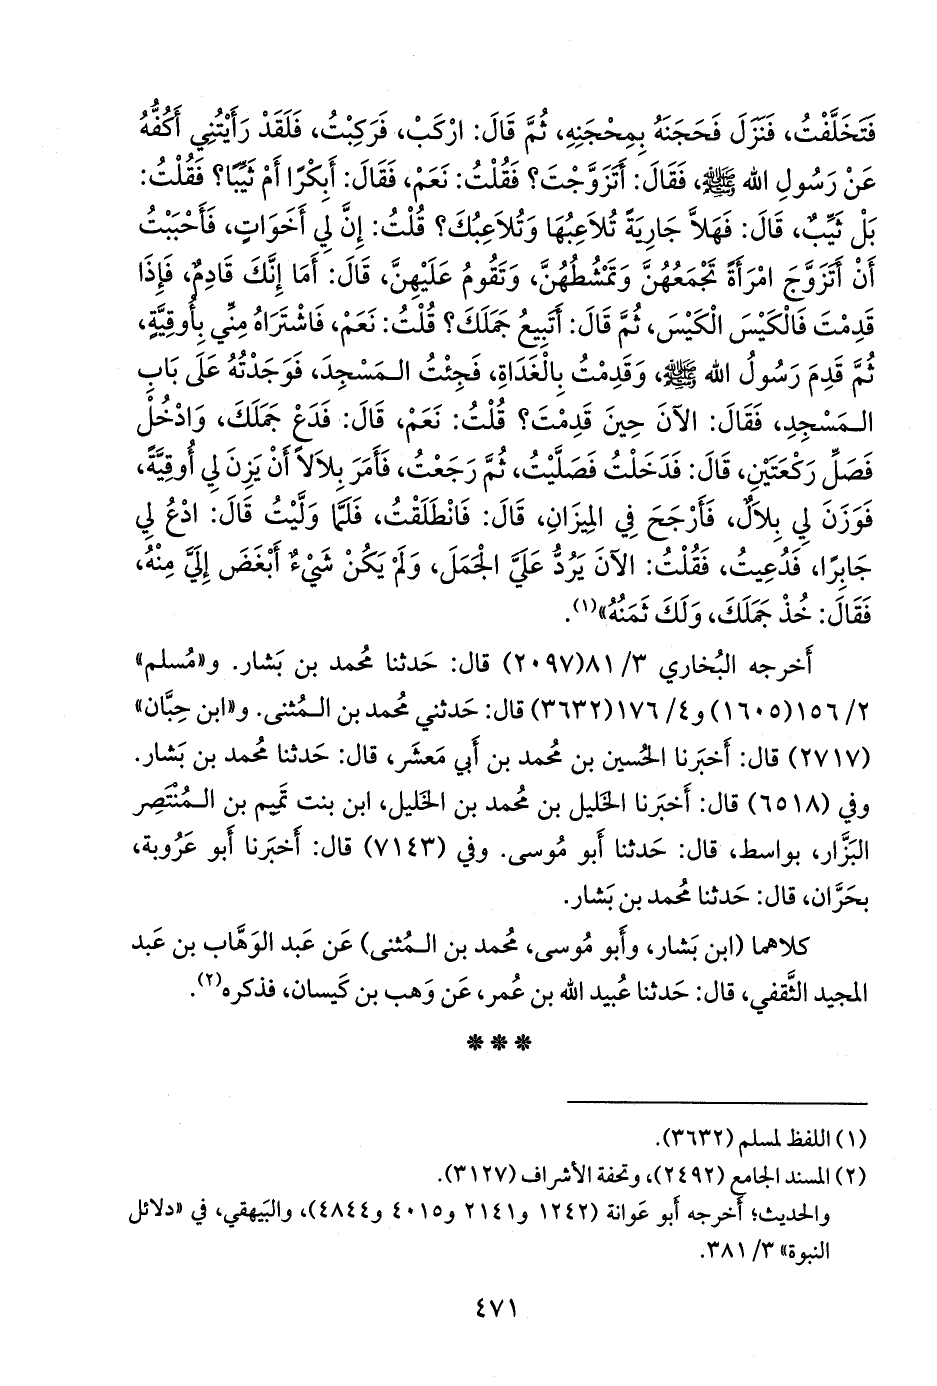 فَتَخَلَّفْتُ، فَنَزَلَ فَحَجَنَهُ بِمِحْجَنِهِ، ثُمَّ قَالَ: ارْكَبْ، فَرَكِبْتُ، فَلَقَدْ رَأَيْتُنِي أَكُفُّهُ
عَنْ رَسُولِ الله ﷺ، فَقَالَ: أَتَزَوَّجْتَ؟ فَقُلْتُ: نَعَمْ، فَقَالَ: أَبِكْرًا أَمْ ثَيِّبًا؟ فَقُلْتُ:
بَلْ ثَيِّبٌ، قَالَ: فَهَلاَّ جَارِيَةً تُلاَعِبُهَا وَتُلاَعِبُكَ؟ قُلْتُ: إِنَّ لِي أَخَوَاتٍ، فَأَحْبَبْتُ
أَنْ أَتَزَوَّجَ امْرَأَةً تَجْمَعُهُنَّ وَتَمْشُطُهُنَّ، وَتَقُومُ عَلَيْهِنَّ، قَالَ: أَمَا إِنَّكَ قَادِمٌ، فَإِذَا
قَدِمْتَ فَالْكَيْسَ الْكَيْسَ، ثُمَّ قَالَ: أَتَبِيعُ جَمَلَكَ؟ قُلْتُ: نَعَمْ، فَاشْتَرَاهُ مِنِّي بِأُوقِيَّةٍ،
ثُمَّ قَدِمَ رَسُولُ الله ﷺ، وَقَدِمْتُ بِالْغَدَاةِ، فَجِئْتُ الْمَسْجِدَ، فَوَجَدْتُهُ عَلَى بَابِ
الْمَسْجِدِ، فَقَالَ: الآنَ حِينَ قَدِمْتَ؟ قُلْتُ: نَعَمْ، قَالَ: فَدَعْ جَمَلَكَ، وَادْخُلْ
فَصَلِّ رَكْعَتَيْنِ، قَالَ: فَدَخَلْتُ فَصَلَّيْتُ، ثُمَّ رَجَعْتُ، فَأَمَرَ بِلاَلاً أَنْ يَزِنَ لِي أُوقِيَّةً،
فَوَزَنَ لِي بِلاَلٌ، فَأَرْجَحَ فِي الْمِيزَانِ، قَالَ: فَانْطَلَقْتُ، فَلَمَّا وَلَّيْتُ قَالَ: ادْعُ لِي
جَابِرًا، فَدُعِيتُ، فَقُلْتُ: الآنَ يَرُدُّ عَلَيَّ الْجَمَلَ، وَلَمْ يَكُنْ شَيْءٌ أَبْغَضَ إِلَيَّ مِنْهُ،
فَقَالَ: خُذْ جَمَلَكَ، وَلَكَ ثَمَنُهُ»(١).
أخرجه البُخاري ٣/ ٨١(٢٠٩٧) قال: حَدثنا مُحمد بن بَشار. و«مُسلم»
٢/ ١٥٦(١٦٠٥) و٤/ ١٧٦(٣٦٣٢) قال: حَدثني مُحمد بن الـمُثنى. و«ابن حِبَّان»
(٢٧١٧) قال: أَخبَرنا الحُسين بن مُحمد بن أَبي مَعشَر، قال: حَدثنا مُحمد بن بَشار.
وفي (٦٥١٨) قال: أَخبَرنا الخليل بن مُحمد بن الخليل، ابن بنت تَميم بن الـمُنْتَصِر
البَزَّار، بواسط، قال: حَدثنا أَبو مُوسى. وفي (٧١٤٣) قال: أَخبَرنا أَبو عَرُوبة،
بحَرَّان، قال: حَدثنا مُحمد بن بَشار.
كلاهما (ابن بَشار، وأَبو مُوسى، مُحمد بن الـمُثنى) عَن عَبد الوَهَّاب بن عَبد
المجيد الثَّقفي، قال: حَدثنا عُبيد الله بن عُمر، عَن وَهب بن كَيسان، فذكره(٢).
***
(١) اللفظ لمسلم (٣٦٣٢).
(٢) المسند الجامع (٢٤٩٢)، وتحفة الأشراف (٣١٢٧).
والحديث؛ أخرجه أبو عَوانة (١٢٤٢ و٢١٤١ و٤٠١٥ و٤٨٤٤)، والبَيهقي، في «دلائل
النبوة» ٣/ ٣٨١.
٤٧١